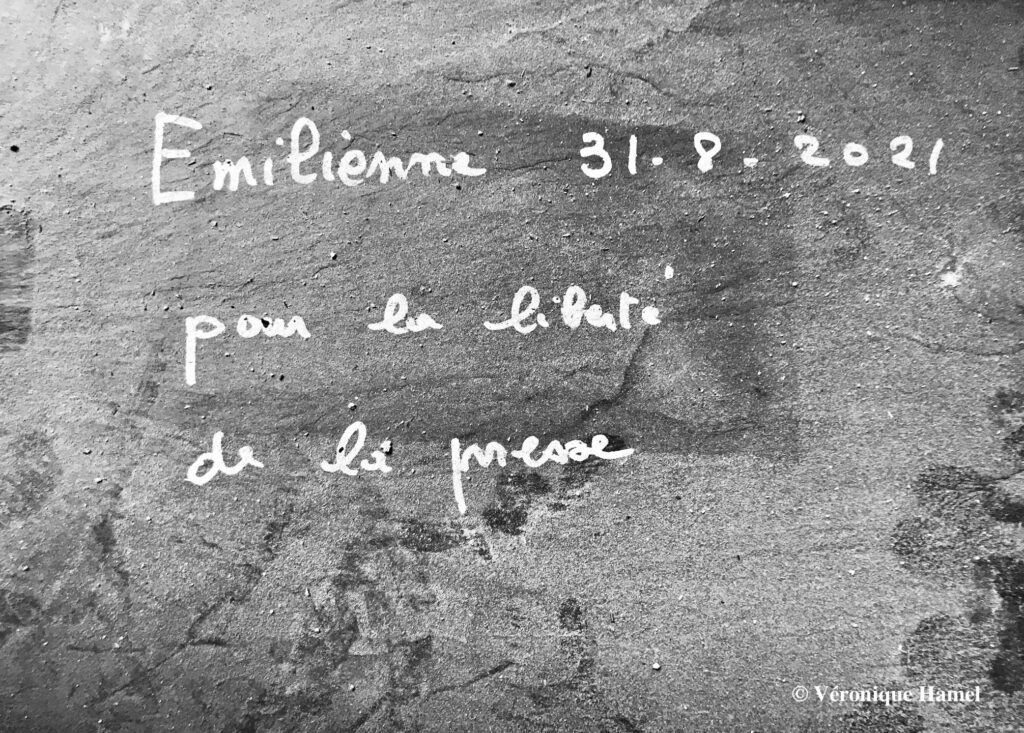 Emilienne 31-8-2021
pour la liberté
de la presse
© Véronique Hamel